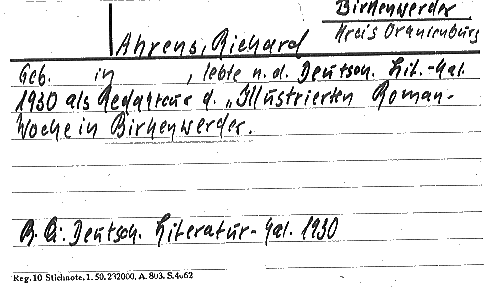 Birkenwerder
Kreis Oranienburg
Ahrens, Richard
Geb. in , lebte n. d. Deutsch. Lit.-Kal.
1930 als Redakteur d. „Illustrierten Roman-
Woche in Birkenwerder.
B. Q: Deutsch. Literatur-Kal. 1930
Reg. 10 Stichnote, 1. 59. 232000, A. 803. S. 4062